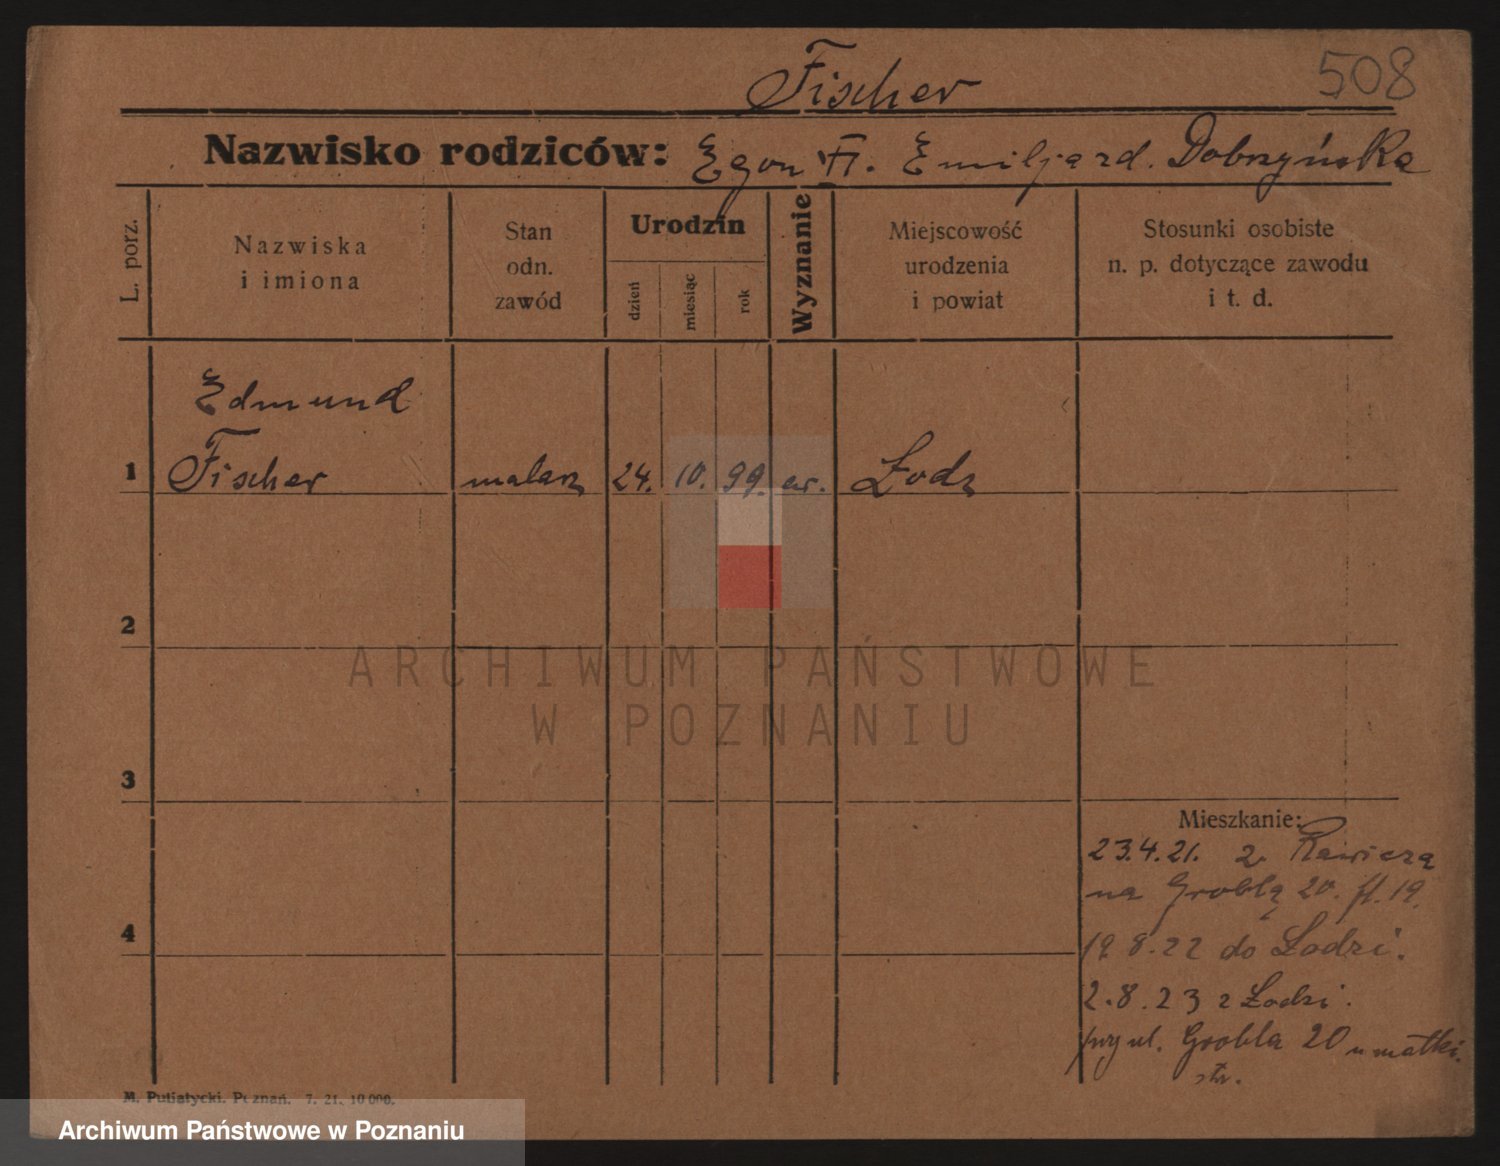 Fischer 508
Nazwisko rodziców: Egon F. Emilja zd. Dobrzyńska
L. porz.
Nazwiska
i imiona
Stan
odn.
zawód
Urodzin
dzień
miesiąc
rok
Wyznanie
Miejscowość
urodzenia
i powiat
Stosunki osobiste
n. p. dotyczące zawodu
i t. d.
Edmund
1 Fischer malarz 24. 10. 99. ew. Łodz
2
ARCHIWUM PAŃSTWOWE
W POZNANIU
3
Mieszkanie:
23.4.21. z Rawicza
na Groblą 20. 19.
4
19 8.22 do Łodzi.
2.8.23 z Łodzi.
przy ul. Grobla 20 u matki.
M. Putiatycki. Poznań. 7. 21. 10 000.
Archiwum Państwowe w Poznaniu